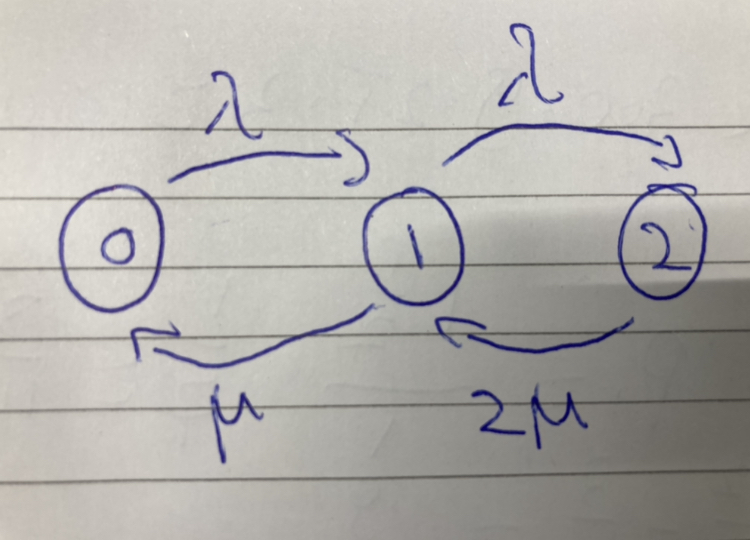 λ λ
0 1 2
μ 2μ